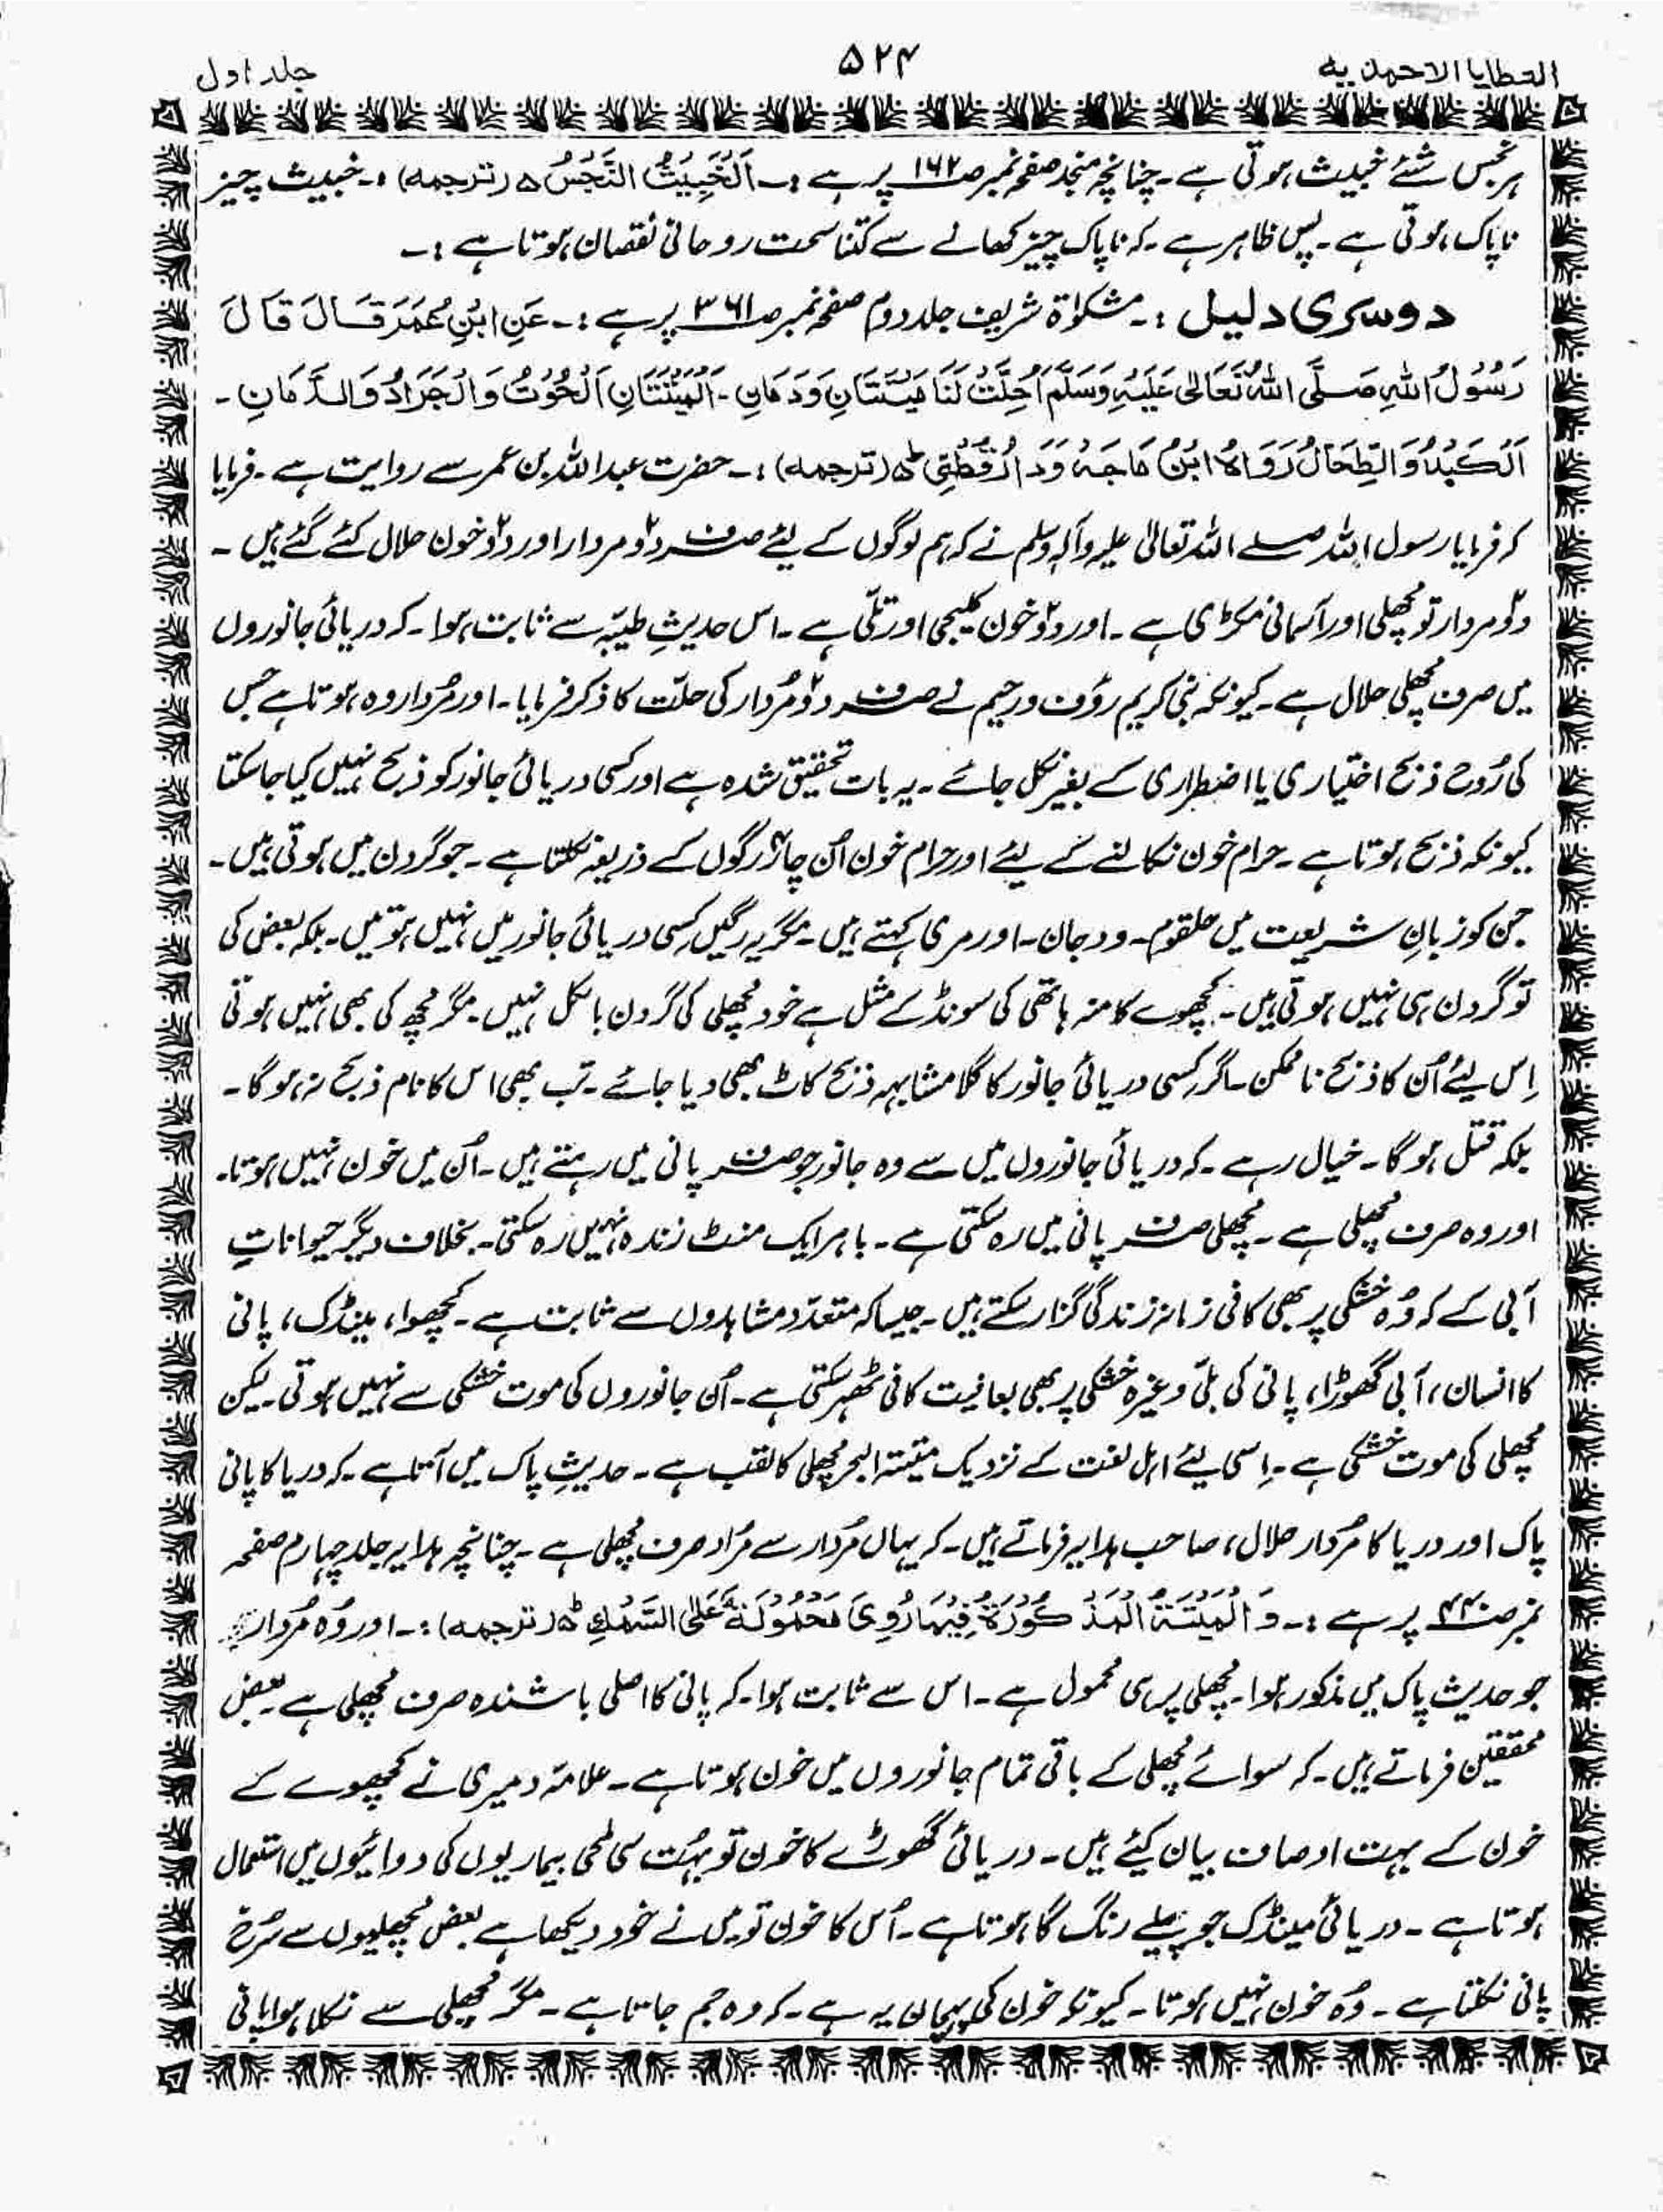 العطایا الاحمدیہ
۵۲۴
جلد اول
ہر نجس شئے خبیث ہوتی ہے۔ چنانچہ منجد صفحہ نمبر صـ۱۶۲ پر ہے :۔ اَلْخَبِیْثُ النَّجَسُ ۵ (ترجمہ) :۔ خبیث چیز
ناپاک ہوتی ہے۔ پس ظاہر ہے۔ کہ ناپاک چیز کھانے سے کتنا سخت روحانی نقصان ہوتا ہے :۔
دوسری دلیل :۔ مشکوٰۃ شریف جلد دوم صفحہ نمبر صـ۳۶۱ پر ہے :۔ عَنِ ابْنِ عُمَرَ قَالَ قَالَ
رَسُوْلُ اللہِ صَلَّی اللہُ تَعَالٰی عَلَیْہِ وَسَلَّمَ اُحِلَّتْ لَنَا مَیْتَتَانِ وَدَمَانِ۔ اَلْمَیْتَتَانِ اَلْحُوْتُ وَالْجَرَادُ وَالدَّمَانِ۔
اَلْکَبِدُ وَالطِّحَالُ رَوَاہُ ابْنُ مَاجَہْ وَدَارُقُطْنِی ۵ (ترجمہ) :۔ حضرت عبداللہ بن عمر سے روایت ہے۔ فرمایا
کہ فرمایا رسول اللہ صلے اللہ تعالیٰ علیہ وآلہ وسلم نے کہ ہم لوگوں کے لیئے صرف دو۲ مردار اور دو۲ خون حلال کئے گئے ہیں۔
دو۲ مردار تو مچھلی اور آسمانی مکڑی ہے۔ اور دو۲ خون کلیجی اور تلّی ہے۔ اس حدیثِ طیّبہ سے ثابت ہوا۔ کہ دریائی جانوروں
میں صرف مچھلی حلال ہے۔ کیونکہ نبی کریم رؤف و رحیم نے صرف دو۲ مُردار کی حلّت کا ذکر فرمایا۔ اور مُردار وہ ہوتا ہے جس
کی رُوح ذبح اختیاری یا اضطراری کے بغیر نکل جائے۔ یہ بات تحقیق شدہ ہے اور کسی دریائی جانور کو ذبح نہیں کیا جا سکتا
کیونکہ ذبح ہوتا ہے۔ حرام خون نکالنے کے لیئے اور حرام خون اُن چار۴ رگوں کے ذریعہ نکلتا ہے۔ جو گردن میں ہوتی ہیں۔
جن کو زبانِ شریعت میں حلقوم۔ ودجان۔ اور مری کہتے ہیں۔ مگر یہ رگیں کسی دریائی جانور میں نہیں ہوتیں۔ بلکہ بعض کی
تو گردن ہی نہیں ہوتی ہیں۔ کچھوے کا منہ ہاتھی کی سونڈ کے مثل ہے خود مچھلی کی گردن بالکل نہیں۔ مگر مچھ کی بھی نہیں ہوتی
اِس لیئے اُن کا ذبح ناممکن۔ اگر کسی دریائی جانور کا گلا مشابہہ ذبح کاٹ بھی دیا جائے۔ تب بھی اس کا نام ذبح نہ ہوگا۔
بلکہ قتل ہوگا۔ خیال رہے۔ کہ دریائی جانوروں میں سے وہ جانور جو صرف پانی میں رہتے ہیں۔ اُن میں خون نہیں ہوتا۔
اور وہ صرف مچھلی ہے۔ مچھلی صرف پانی میں رہ سکتی ہے۔ باہر ایک منٹ زندہ نہیں رہ سکتی۔ بخلاف دیگر حیواناتِ
آبی کے کہ وُہ خشکی پر بھی کافی زمانہ زندگی گزار سکتے ہیں۔ جیسا کہ متعدّد مشاہدوں سے ثابت ہے۔ کچھوا، مینڈک، پانی
کا انسان، آبی گھوڑا، پانی کی بلّی وغیرہ خشکی پر بھی بعافیت کافی ٹھہر سکتی ہے۔ اُن جانوروں کی موت خشکی سے نہیں ہوتی۔ لیکن
مچھلی کی موت خشکی ہے۔ اِسی لیئے اہل لغت کے نزدیک میّتۃ البحر مچھلی کا لقب ہے۔ حدیثِ پاک میں آتا ہے۔ کہ دریا کا پانی
پاک اور دریا کا مُردار حلال، صاحب ہدایہ فرماتے ہیں۔ کہ یہاں مُردار سے مُراد صرف مچھلی ہے۔ چنانچہ ہدایہ جلد چہارم صفحہ
نمبر صـ۴۴۰ پر ہے :۔ وَالْمَیْتَۃُ الْمَذْکُوْرَۃُ فِیْمَا رُوِیَ مَحْمُوْلَۃٌ عَلَی السَّمَکِ ۵ (ترجمہ) :۔ اور وُہ مُردار
جو حدیث پاک میں مذکور ہوا۔ مچھلی پر ہی محمول ہے۔ اس سے ثابت ہوا۔ کہ پانی کا اصلی باشندہ صرف مچھلی ہے بعض
محققین فرماتے ہیں۔ کہ سوائے مچھلی کے باقی تمام جانوروں میں خون ہوتا ہے۔ علامہ دمیری نے کچھوے کے
خون کے بہت اوصاف بیان کیئے ہیں۔ دریائی گھوڑے کا خون تو بہُت سی طبی بیماریوں کی دوائیوں میں استعمال
ہوتا ہے۔ دریائی مینڈک جو پیلے رنگ گا ہوتا ہے۔ اُس کا خون تو میں نے خود دیکھا ہے بعض مچھلیوں سے سُرخ
پانی نکلتا ہے۔ وُہ خون نہیں ہوتا۔ کیونکہ خون کی پہچان یہ ہے۔ کہ وہ جم جاتا ہے۔ مگر مچھلی سے نکلا ہوا پانی